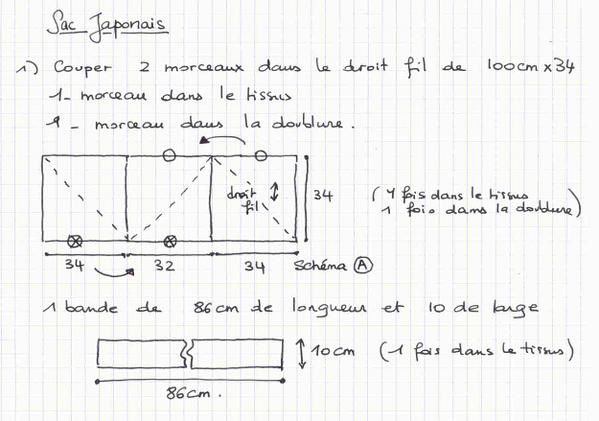 Sac Japonais
1) Couper 2 morceaux dans le droit fil de 100cm x 34
1- morceau dans le tissus
1 - morceau dans la doublure.
droit
fil
34
(1 fois dans le tissus
1 fois dans la doublure)
34 32 34 Schéma A
1 bande de 86cm de longueur et 10 de large
10cm (1 fois dans le tissus)
86cm.